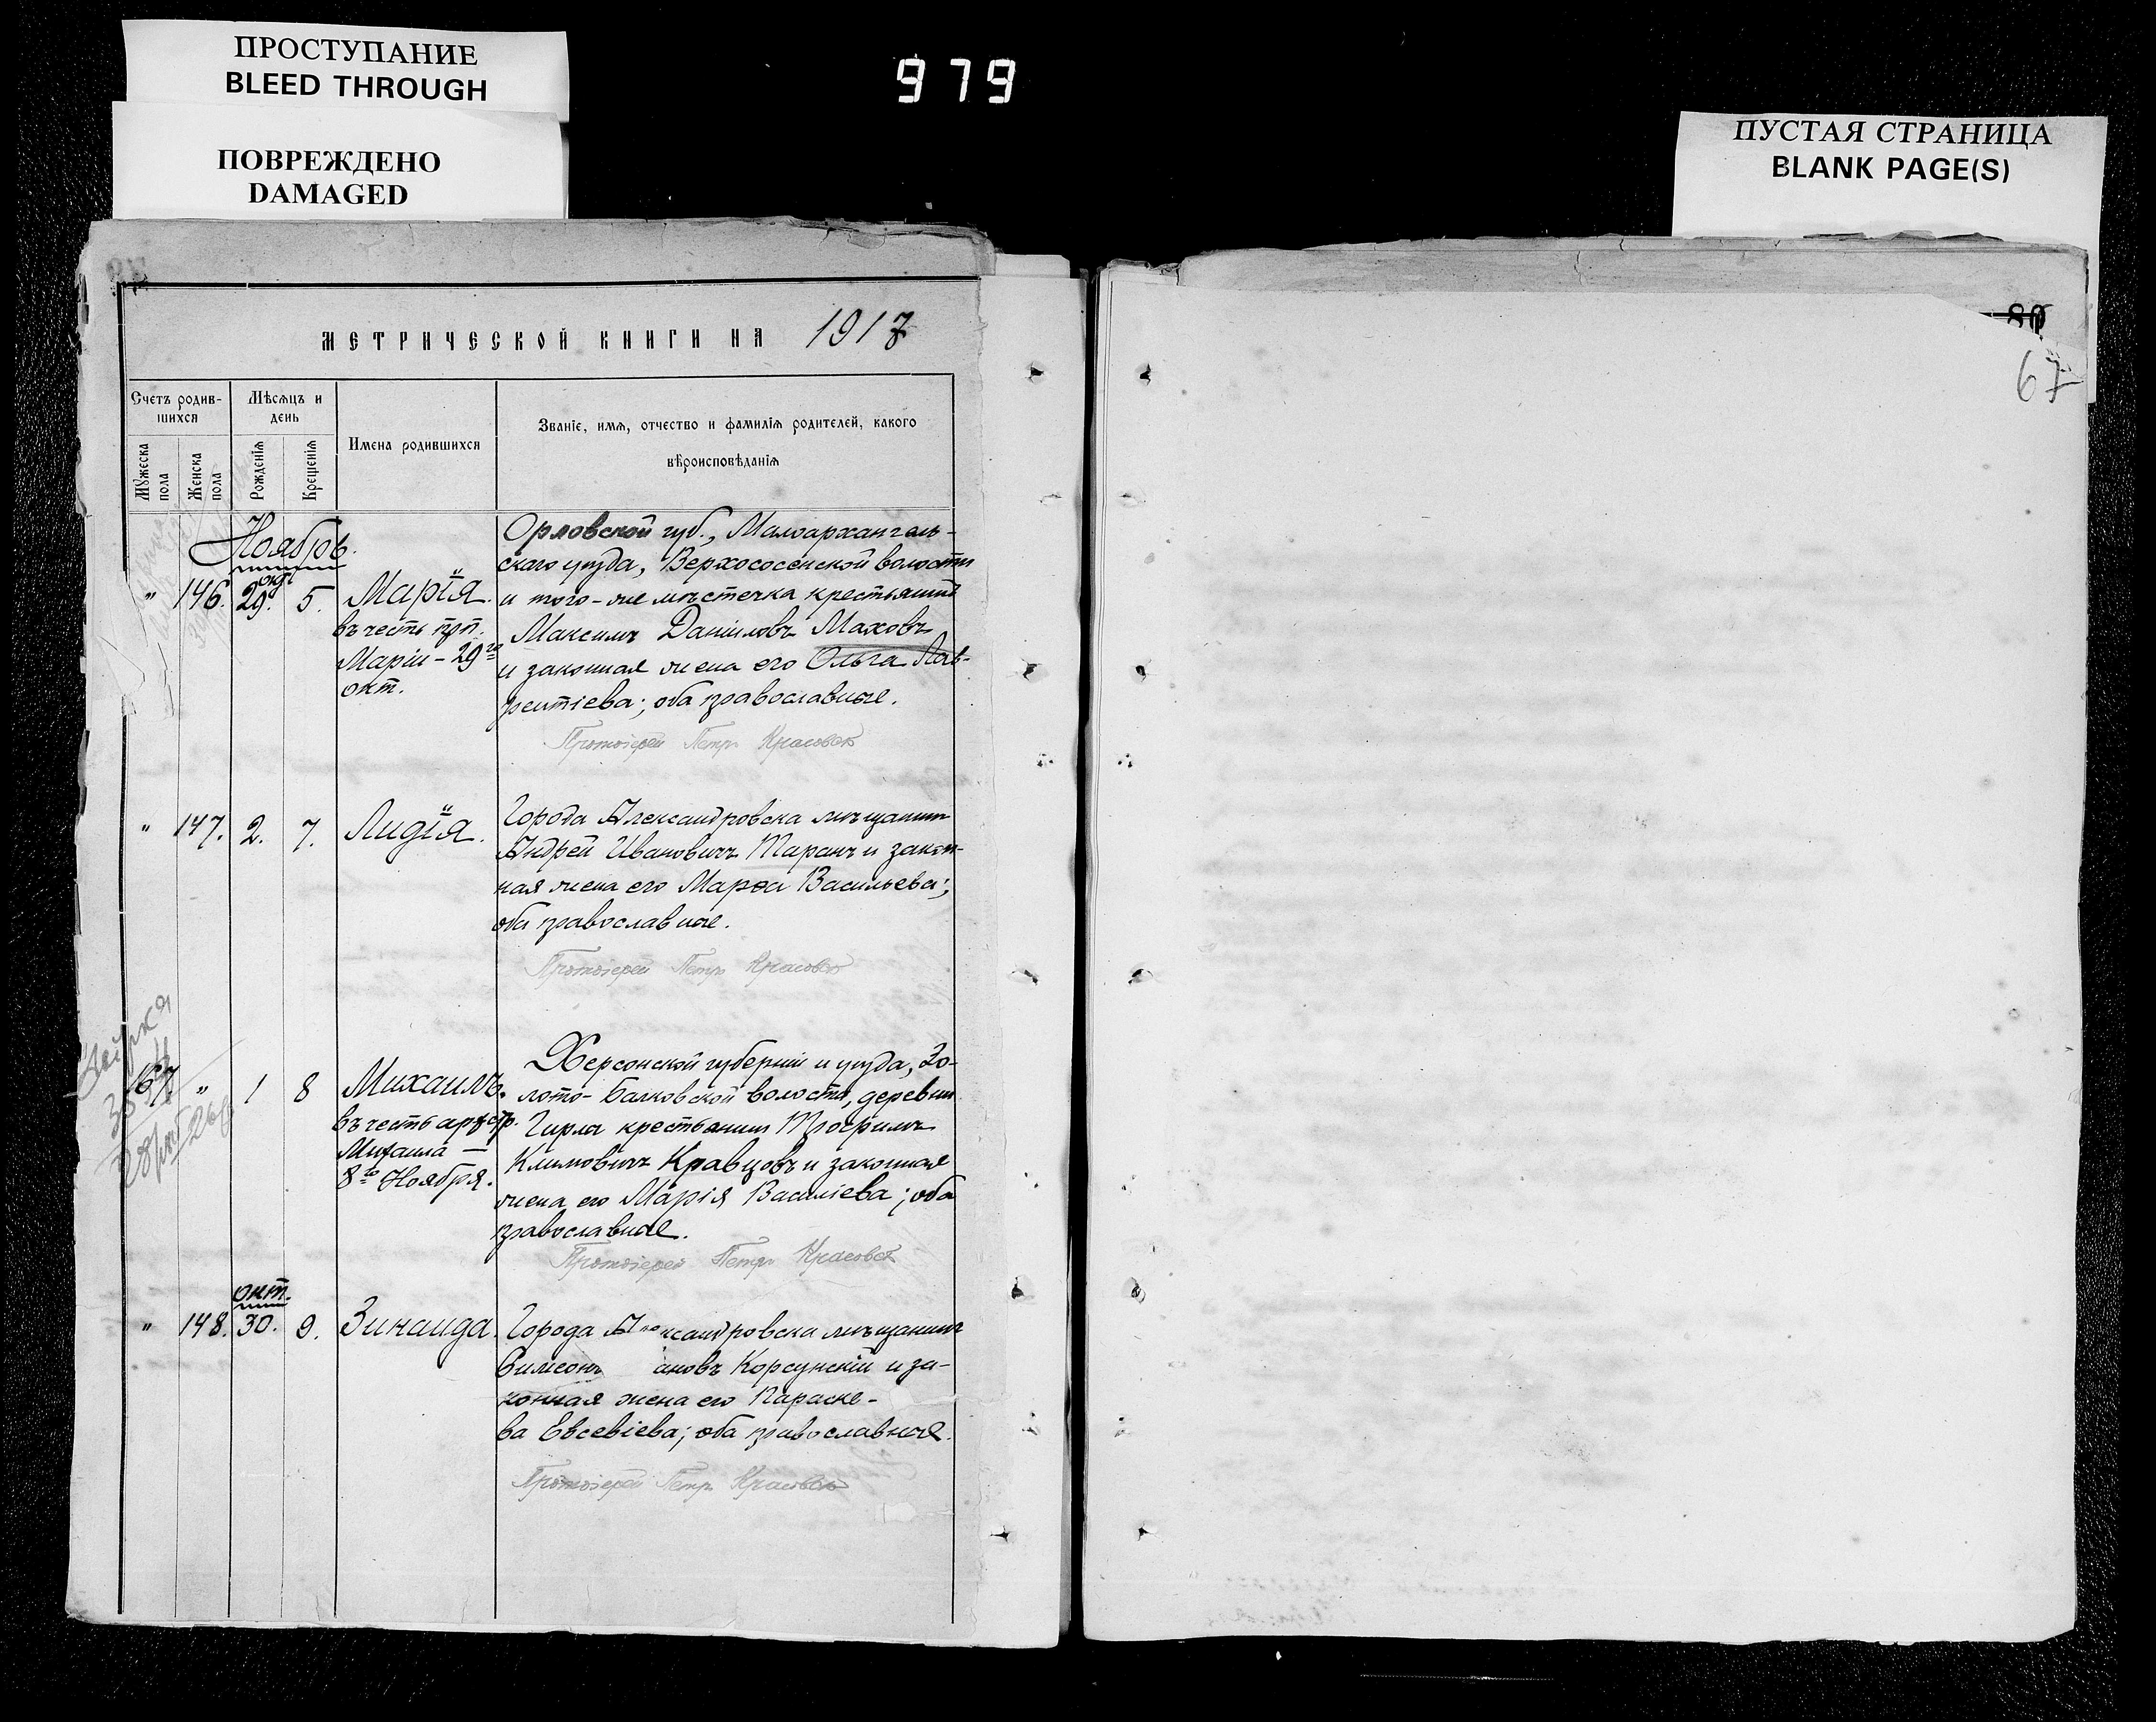 ПРОСТУПАНИЕ
BLEED THROUGH
ПОВРЕЖДЕНО
DAMAGED
979
ПУСТАЯ СТРАНИЦА
BLANK PAGE(S)
МЕТРИЧЕСКОЙ КНИГИ НА 1917
Счетъ родив-
шихся
Мѣсяцъ и
день
Имена родившихся
Званіе, имя, отчество и фамилія родителей, какого
вѣроисповѣданія
Мужеска
пола
Женска
пола
Рожденія
Крещенія
Ноябрь.
Орловской губ., Малоархангель-
скаго уѣзда, Верхососенской волости
" 146. окт. 29. 5. Марія. и того-же мѣстечка крестьянинъ
въ честь прп. Максимъ Даніиловъ Маховъ
Маріи - 29го и законная жена его Ольга Лав-
окт. рентіева; оба православные.
Протоіерей Петръ Красовск
" 147. 2. 7. Лидія. Города Александровска мѣщанинъ
Андрей Ивановичъ Таранъ и закон-
ная жена его Марѳа Васильева;
оба православные.
Протоіерей Петръ Красовск
Херсонской губерніи и уѣзда, Зо-
167 " 1 8 Михаилъ. лото-Балковской волости, деревни
въ честь архстр. Гирла крестьянинъ Трофимъ
Михаила — Климовичъ Кравцовъ и законная
8го Ноября. жена его Марія Василіева; оба
православные.
Протоіерей Петръ Красовск
окт.
" 148. 30. 9. Зинаида. Города Александровска мѣщанинъ
Симеонъ ановъ Корсунскій и за-
конная жена его Параске-
ва Евсевіева; оба православные.
Протоіерей Петръ Красовск
67